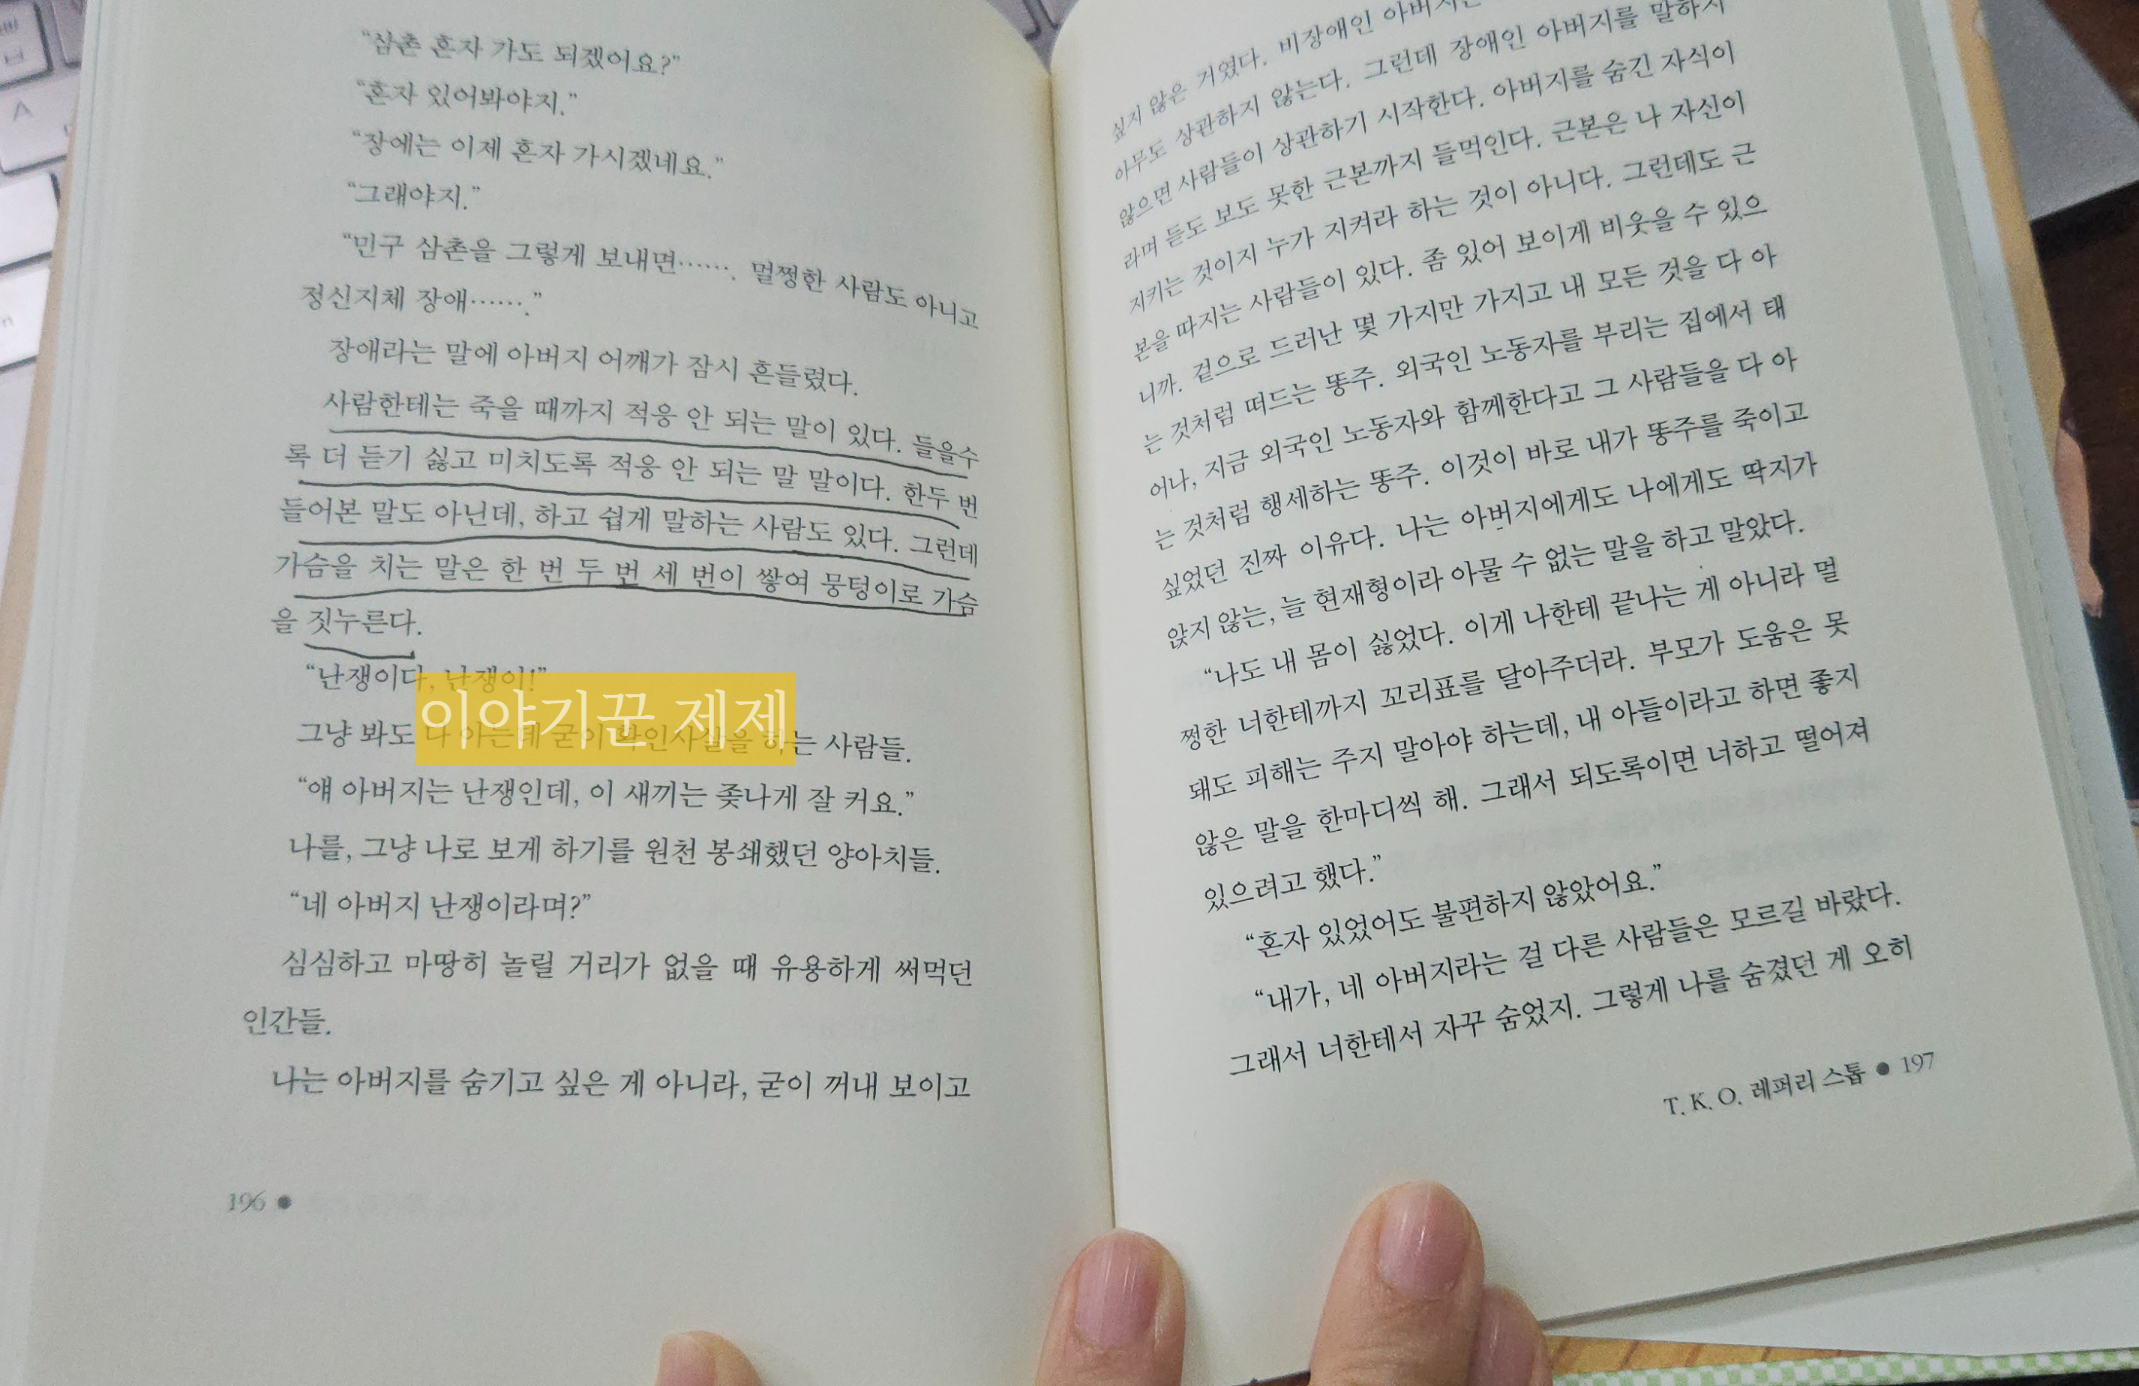 “삼촌 혼자 가도 되겠어요?”
“혼자 있어봐야지.”
“장에는 이제 혼자 가시겠네요.”
“그래야지.”
“민구 삼촌을 그렇게 보내면……. 멀쩡한 사람도 아니고
정신지체 장애…….”
장애라는 말에 아버지 어깨가 잠시 흔들렸다.
사람한테는 죽을 때까지 적응 안 되는 말이 있다. 들을수
록 더 듣기 싫고 미치도록 적응 안 되는 말 말이다. 한두 번
들어본 말도 아닌데, 하고 쉽게 말하는 사람도 있다. 그런데
가슴을 치는 말은 한 번 두 번 세 번이 쌓여 뭉텅이로 가슴
을 짓누른다.
“난쟁이다, 난쟁이!”
이야기꾼 제제
그냥 봐도 다 아는데 굳이 확인사살을 하는 사람들.
“얘 아버지는 난쟁인데, 이 새끼는 좆나게 잘 커요.”
나를, 그냥 나로 보게 하기를 원천 봉쇄했던 양아치들.
“네 아버지 난쟁이라며?”
심심하고 마땅히 놀릴 거리가 없을 때 유용하게 써먹던
인간들.
나는 아버지를 숨기고 싶은 게 아니라, 굳이 꺼내 보이고
196 ●
싶지 않은 거였다. 비장애인 아버지는
아무도 상관하지 않는다. 그런데 장애인 아버지를 말하지
않으면 사람들이 상관하기 시작한다. 아버지를 숨긴 자식이
라며 듣도 보도 못한 근본까지 들먹인다. 근본은 나 자신이
지키는 것이지 누가 지켜라 하는 것이 아니다. 그런데도 근
본을 따지는 사람들이 있다. 좀 있어 보이게 비웃을 수 있으
니까. 겉으로 드러난 몇 가지만 가지고 내 모든 것을 다 아
는 것처럼 떠드는 똥주. 외국인 노동자를 부리는 집에서 태
어나, 지금 외국인 노동자와 함께한다고 그 사람들을 다 아
는 것처럼 행세하는 똥주. 이것이 바로 내가 똥주를 죽이고
싶었던 진짜 이유다. 나는 아버지에게도 나에게도 딱지가
앉지 않는, 늘 현재형이라 아물 수 없는 말을 하고 말았다.
“나도 내 몸이 싫었다. 이게 나한테 끝나는 게 아니라 멀
쩡한 너한테까지 꼬리표를 달아주더라. 부모가 도움은 못
돼도 피해는 주지 말아야 하는데, 내 아들이라고 하면 좋지
않은 말을 한마디씩 해. 그래서 되도록이면 너하고 떨어져
있으려고 했다.”
“혼자 있었어도 불편하지 않았어요.”
“내가, 네 아버지라는 걸 다른 사람들은 모르길 바랐다.
그래서 너한테서 자꾸 숨었지. 그렇게 나를 숨겼던 게 오히
T. K. O. 레퍼리 스톱 ● 197